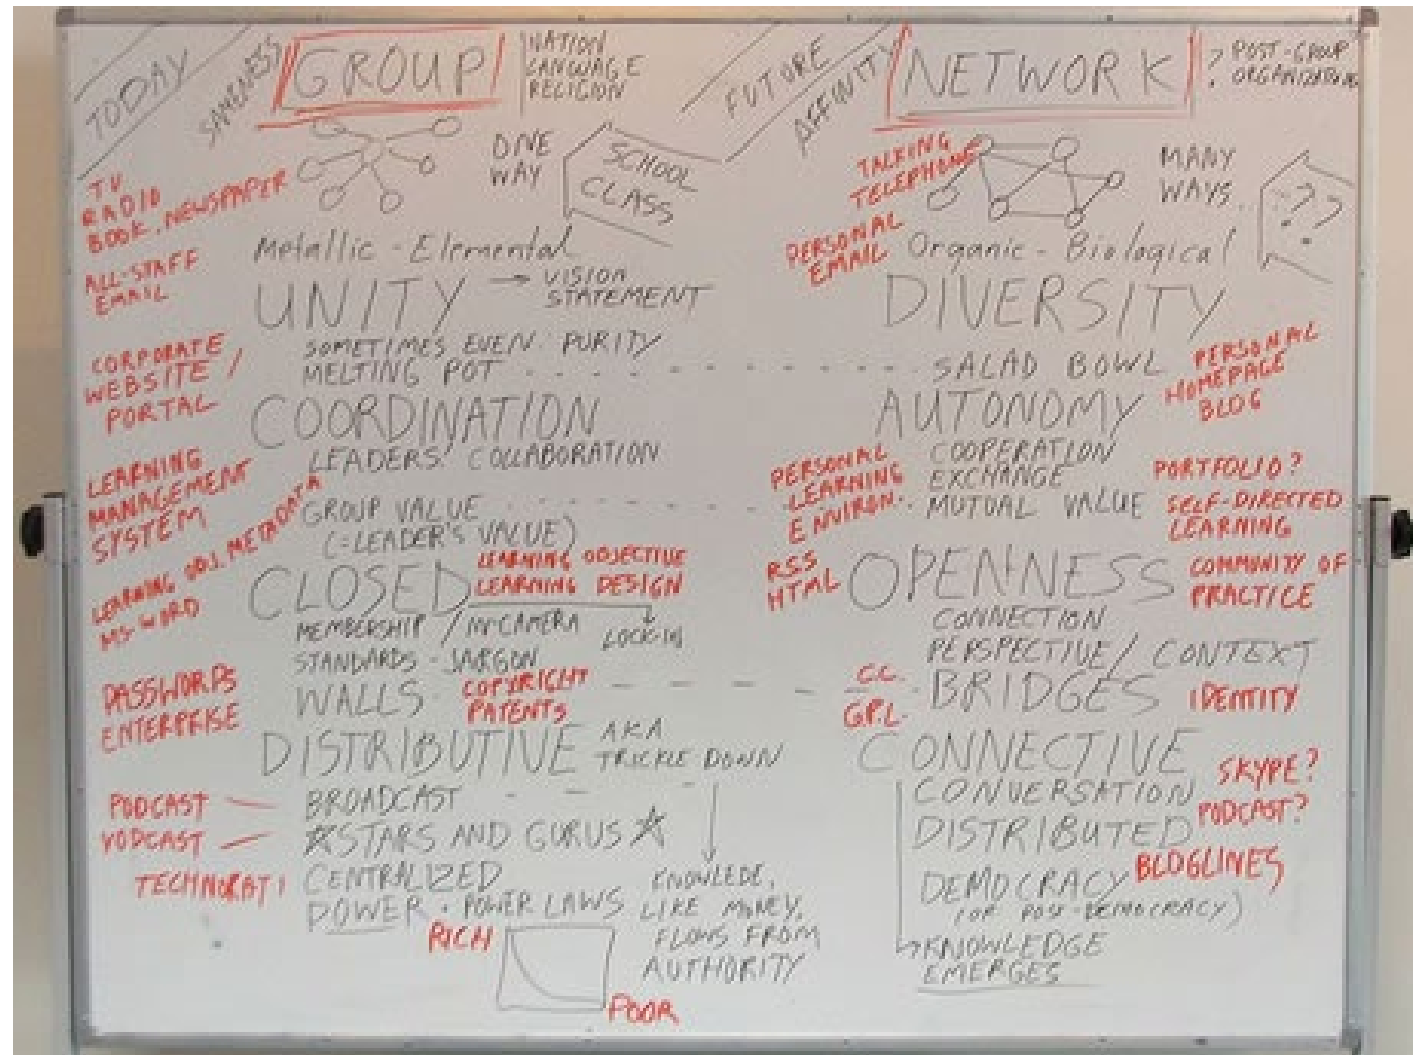 TODAY
SAMENESS
GROUP
NATION
LANGUAGE
RELIGION
ONE
WAY
SCHOOL
CLASS
TV
RADIO
BOOK, NEWSPAPER
Metallic - Elemental
ALL-STAFF
EMAIL
UNITY → VISION
STATEMENT
SOMETIMES EVEN: PURITY
MELTING POT
CORPORATE
WEBSITE /
PORTAL
COORDINATION
LEADERS: COLLABORATION
LEARNING
MANAGEMENT
SYSTEM
GROUP VALUE
(=LEADER'S VALUE)
LEARNING OBJ. METADATA
MS-WORD
CLOSED
LEARNING OBJECTIVE
LEARNING DESIGN
MEMBERSHIP / IN-CAMERA
LOCK-IN
STANDARDS - JARGON
WALLS
COPYRIGHT
PATENTS
PASSWORDS
ENTERPRISE
DISTRIBUTIVE AKA
TRICKLE DOWN
PODCAST — BROADCAST
VODCAST — ☆STARS AND GURUS☆
TECHNORATI
CENTRALIZED
POWER - POWER LAWS
RICH
POOR
KNOWLEDE,
LIKE MONEY,
FLOWS FROM
AUTHORITY
FUTURE
AFFINITY
NETWORK
? POST-GROUP
TALKING
TELEPHONE
MANY
WAYS...
???
PERSONAL
EMAIL
Organic - Biological
DIVERSITY
SALAD BOWL
PERSONAL
HOMEPAGE
BLOG
AUTONOMY
COOPERATION
EXCHANGE
MUTUAL VALUE
PERSONAL
LEARNING
ENVIRON.
PORTFOLIO?
SELF-DIRECTED
LEARNING
RSS
HTML
OPENNESS
COMMUNITY OF
PRACTICE
CONNECTION
PERSPECTIVE / CONTEXT
C.C.
G.P.L.
BRIDGES
IDENTITY
CONNECTIVE
CONVERSATION
SKYPE?
PODCAST?
DISTRIBUTED
BLOGLINES
DEMOCRACY
(OR POST-DEMOCRACY)
↳KNOWLEDGE
EMERGES